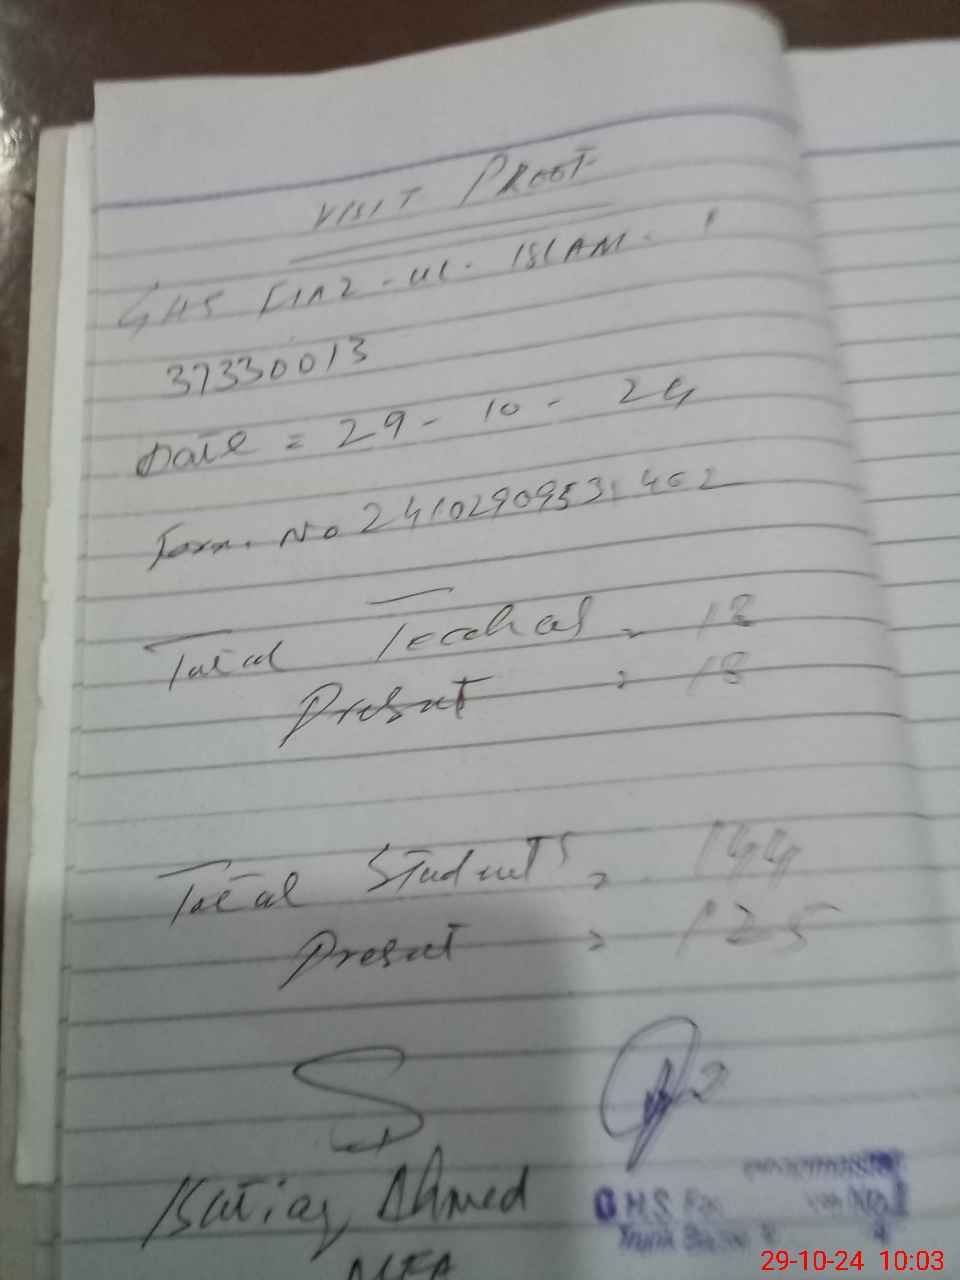 VISIT PROOF
GHS FIAZ-UL-ISLAM. 1
37330013
Date = 29 - 10 - 24
Form. No 24102909531402
Total Teachers = 18
Present = 18
Total Students = 144
Present = 125
Ishtiaq Ahmed
MEA
G.H.S.
29-10-24 10:03